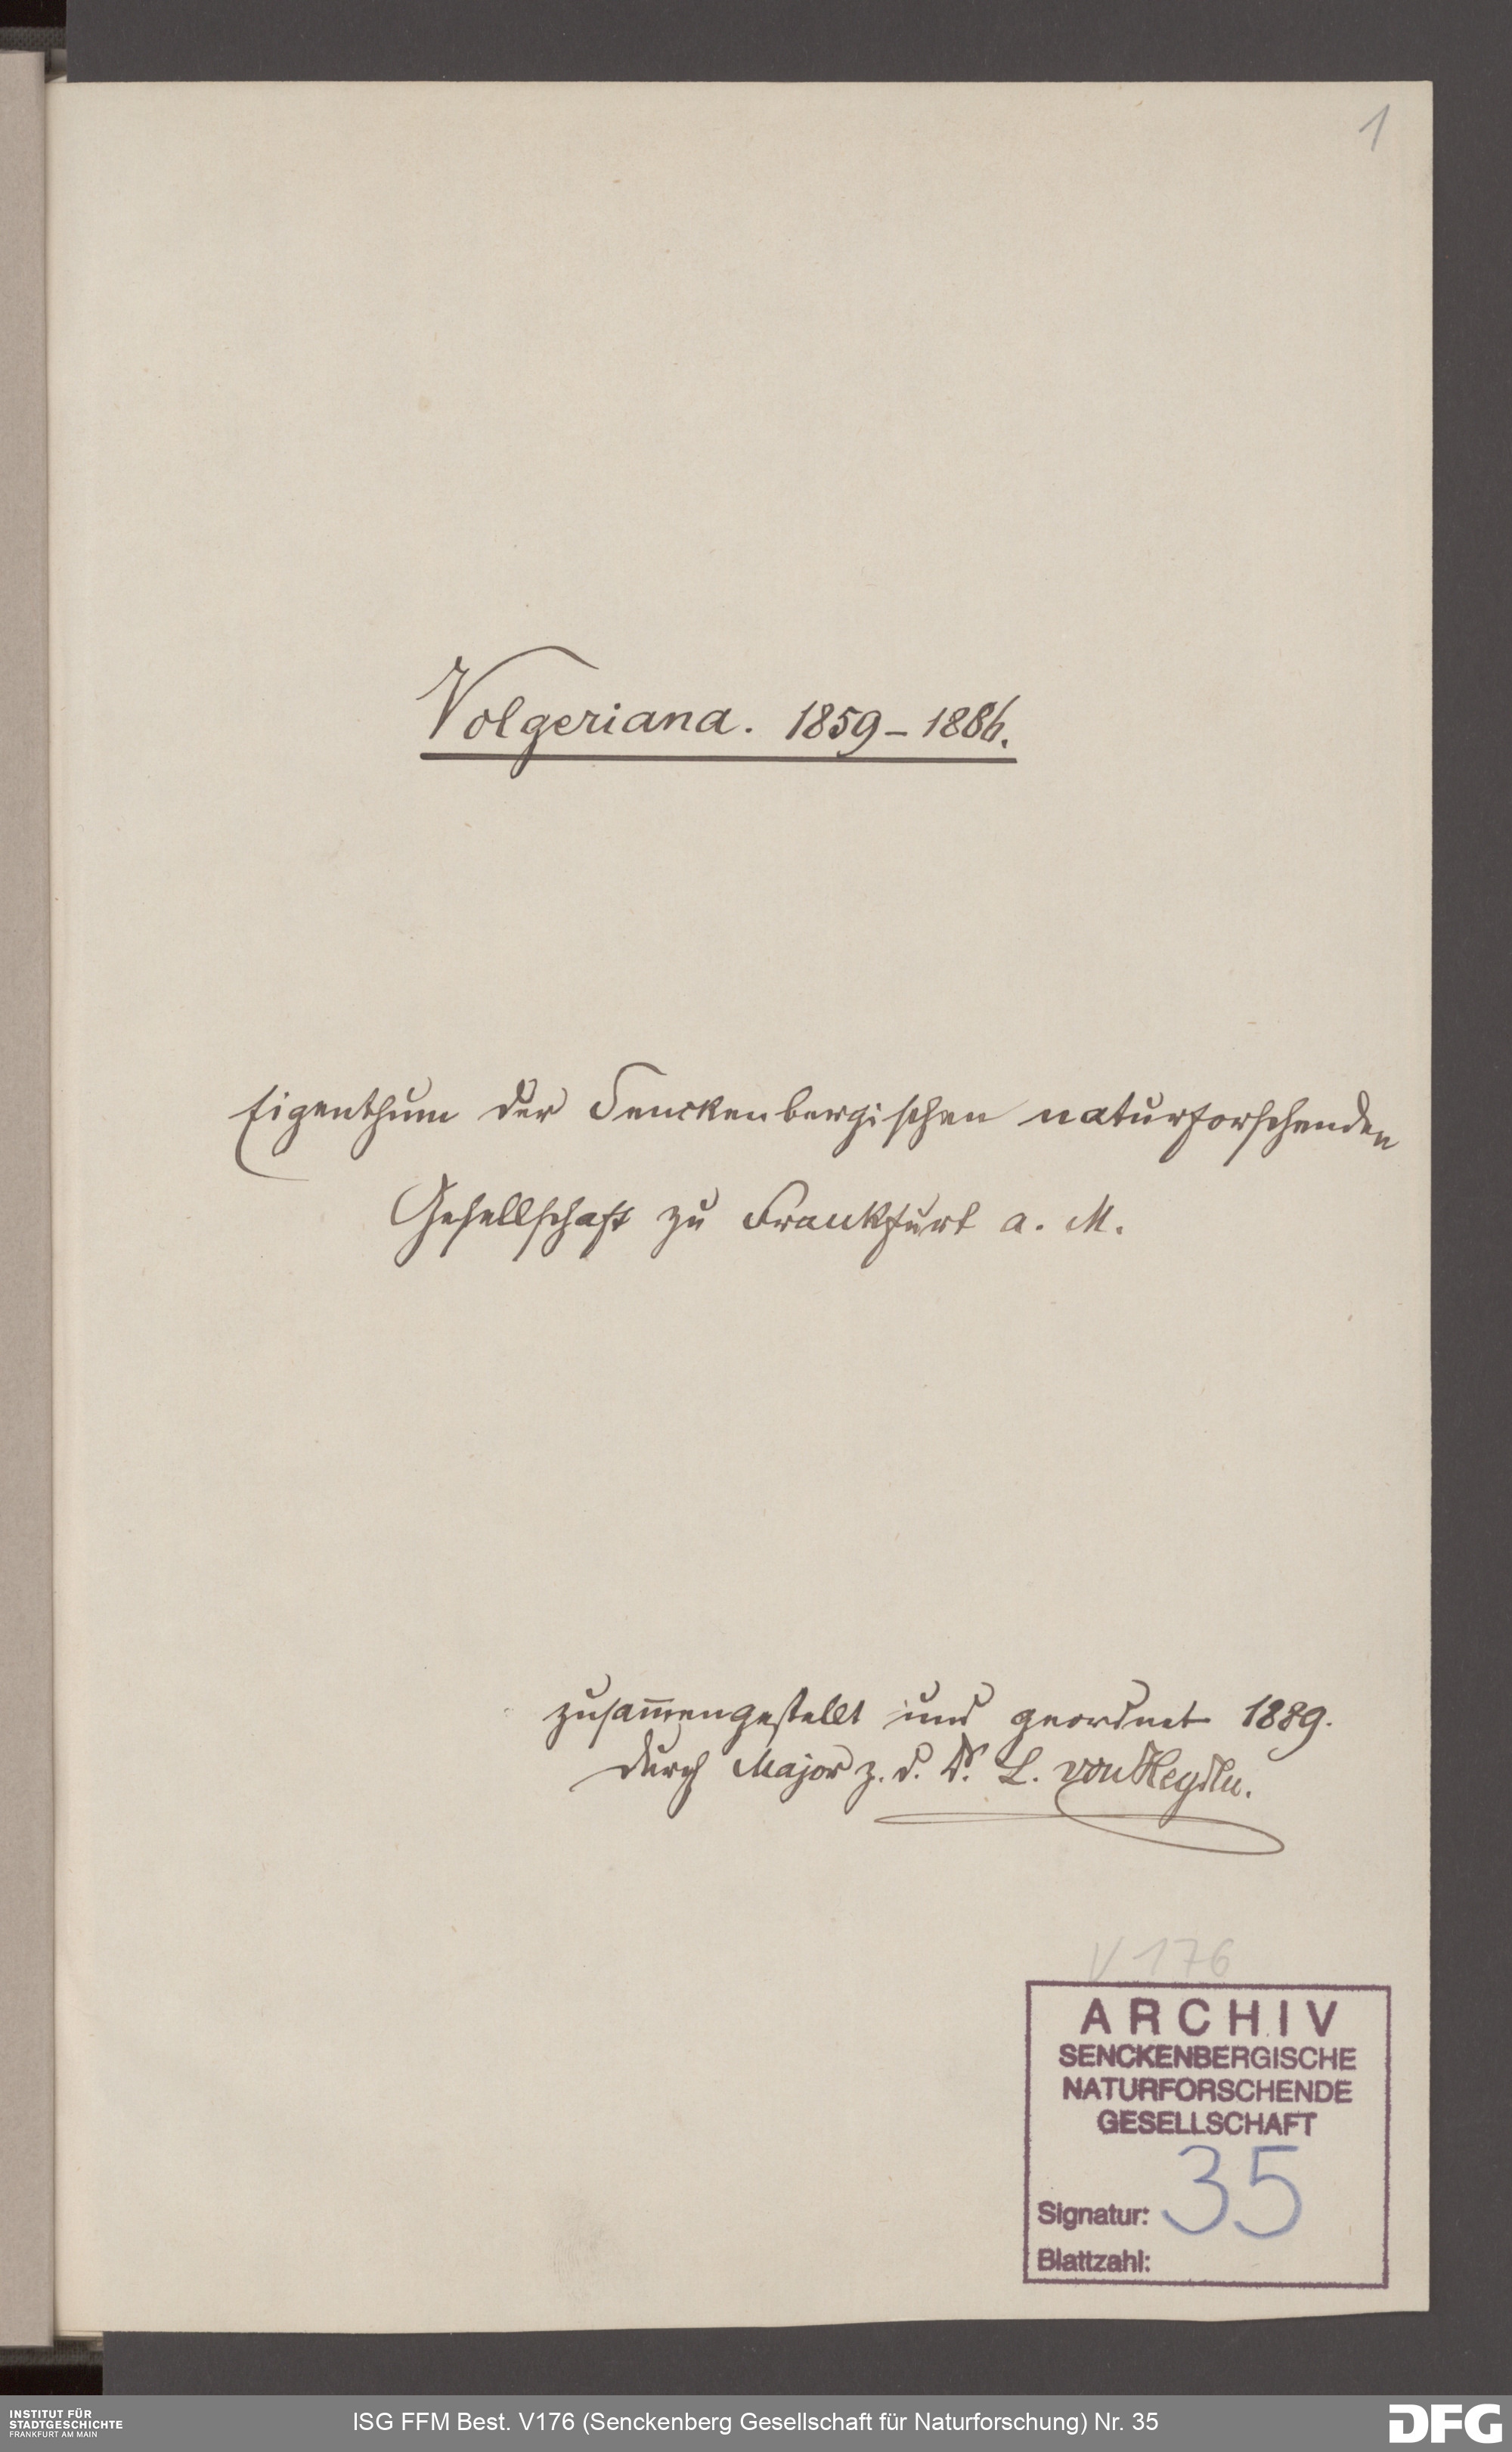 1
Volgeriana. 1859–1886.
Eigenthum der Senckenbergischen naturforschenden
Gesellschaft zu Frankfurt a. M.
zusam̅engestellt und geordnet 1889.
durch Major z. D. Dr. L. von Heyden.
V 176
ARCHIV
SENCKENBERGISCHE
NATURFORSCHENDE
GESELLSCHAFT
Signatur: 35
Blattzahl:
INSTITUT FÜR
STADTGESCHICHTE
FRANKFURT AM MAIN
ISG FFM Best. V176 (Senckenberg Gesellschaft für Naturforschung) Nr. 35
DFG